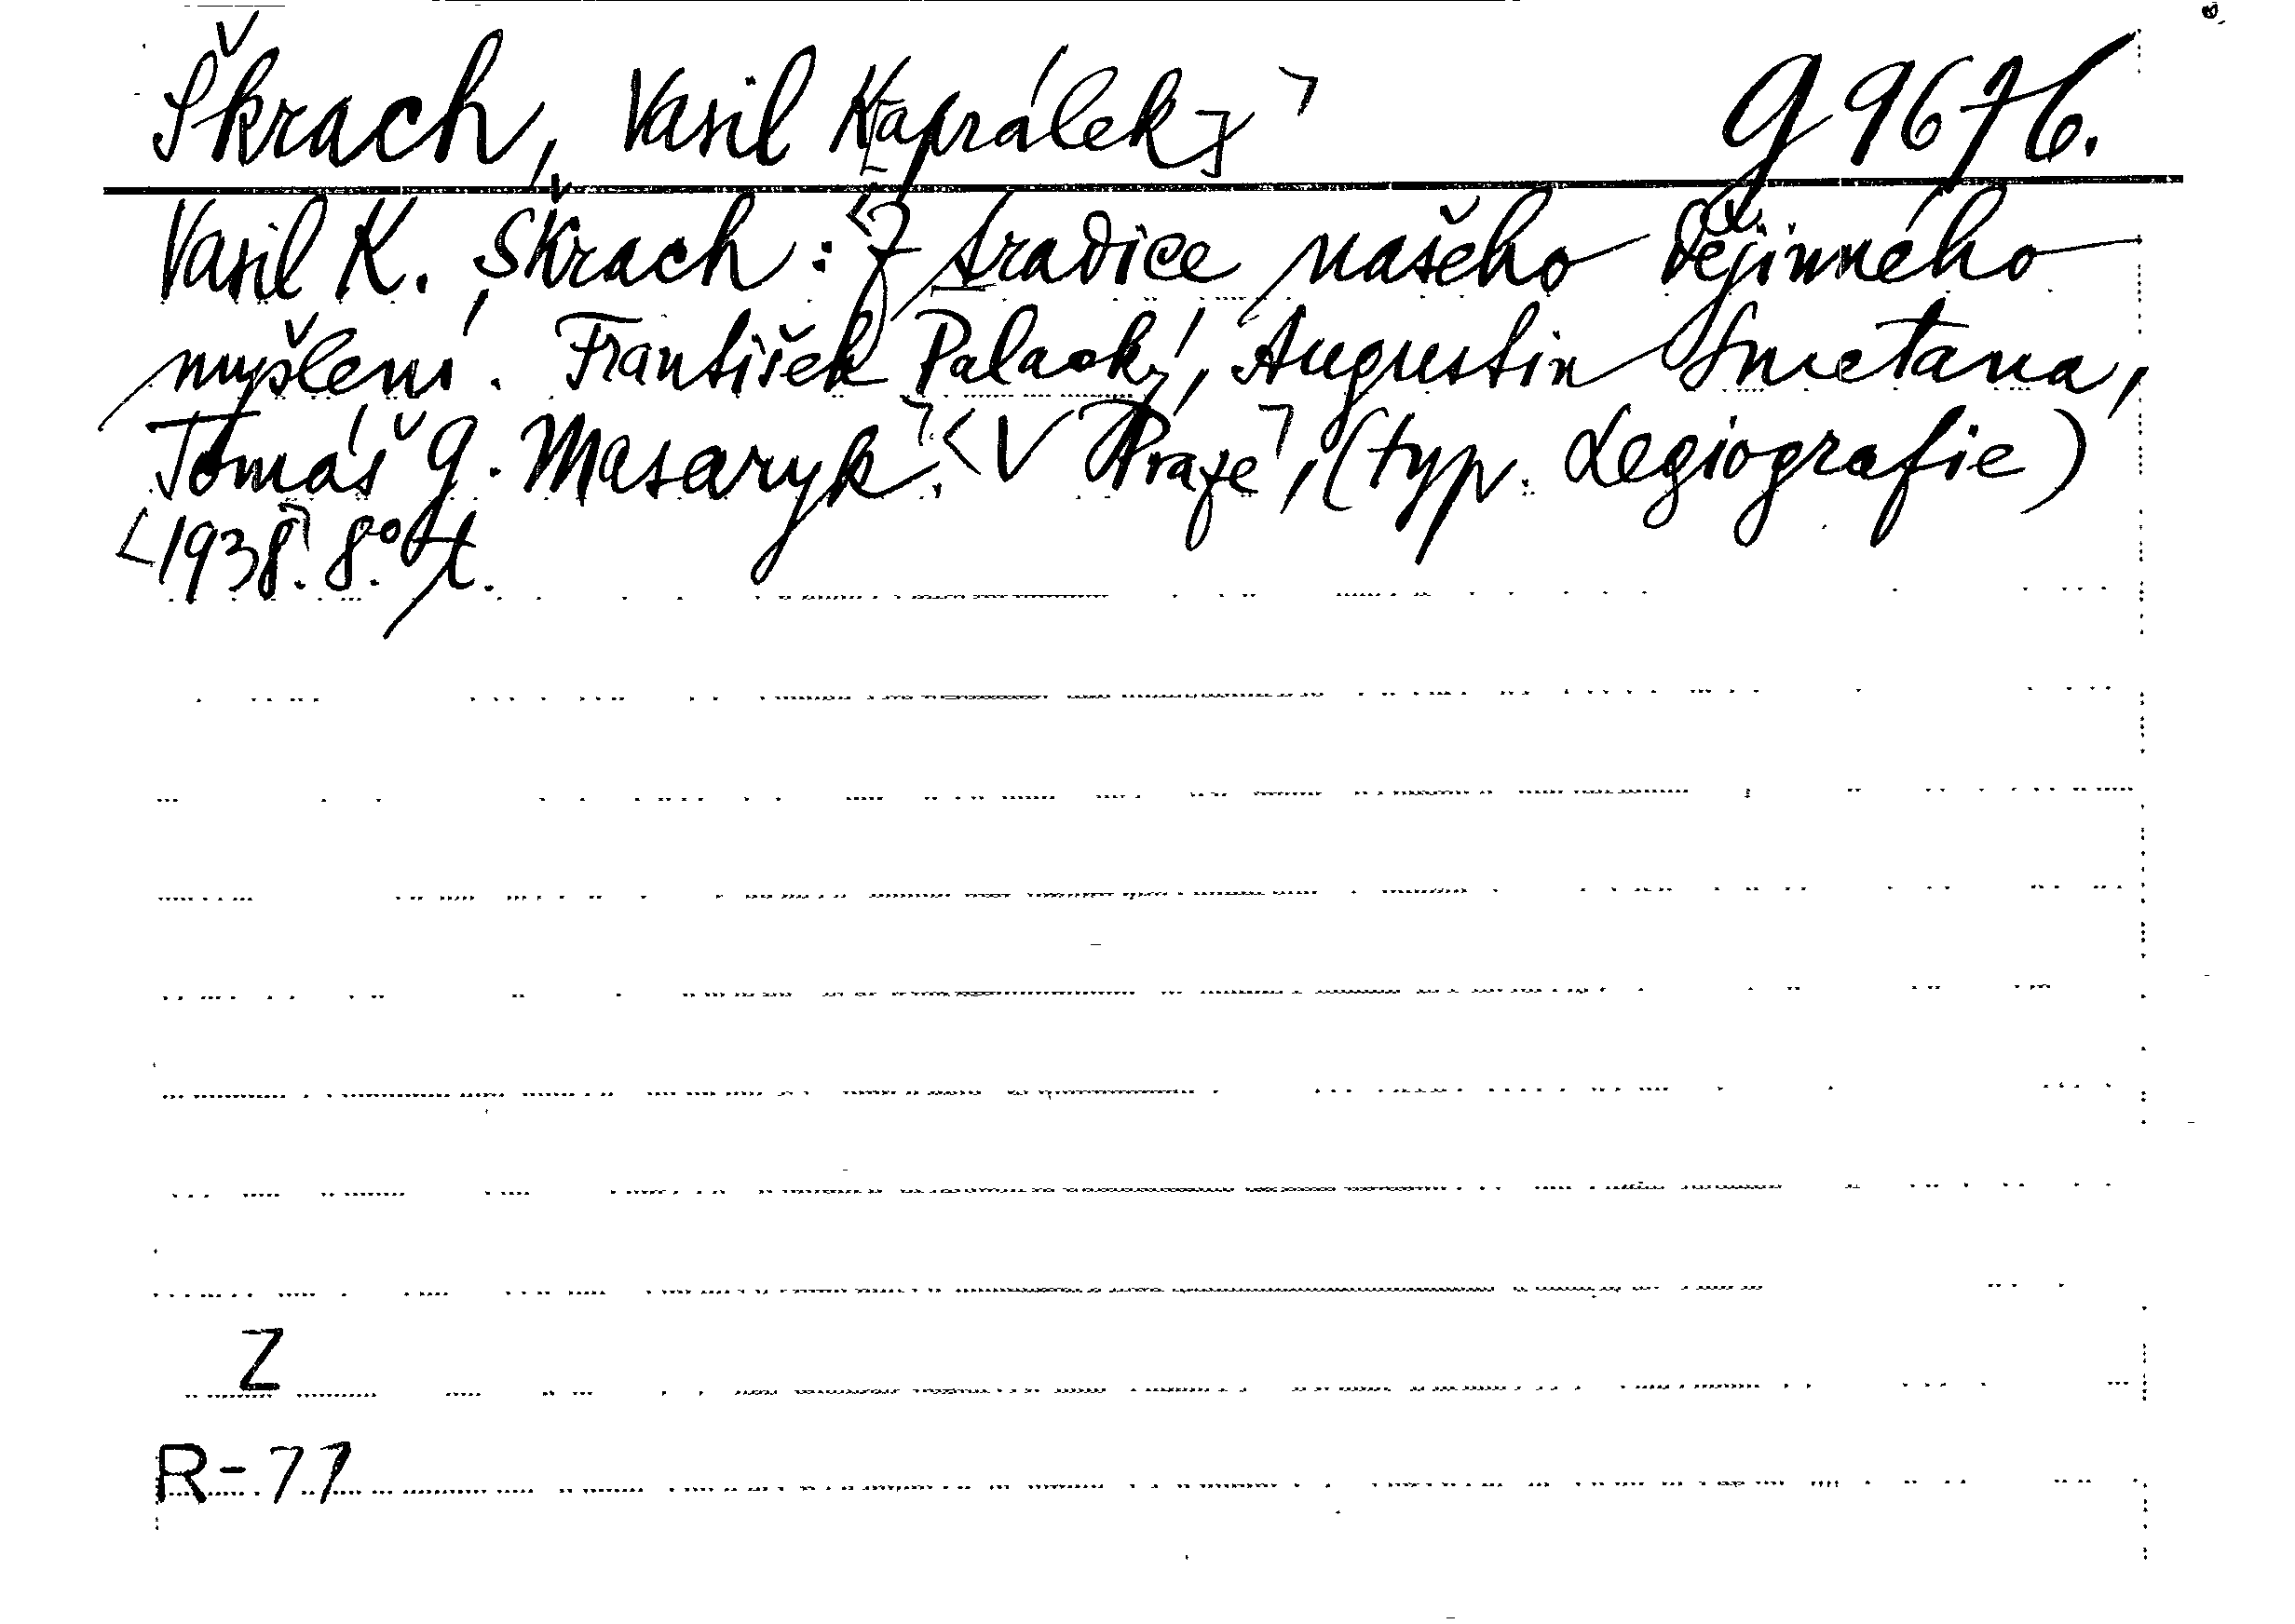 Škrach, Vasil K[aprálek] ꓶ g 9676.
Vasil K. Škrach: <Z tradice našeho dějinného
myšlení. František Palacký, Augustin Smetana,
Tomáš G. Masaryk.ꓶ <V Prazeꓶ, (typ. Legiografie)
<1938ꓶ. 8.° t.
Z
R-77